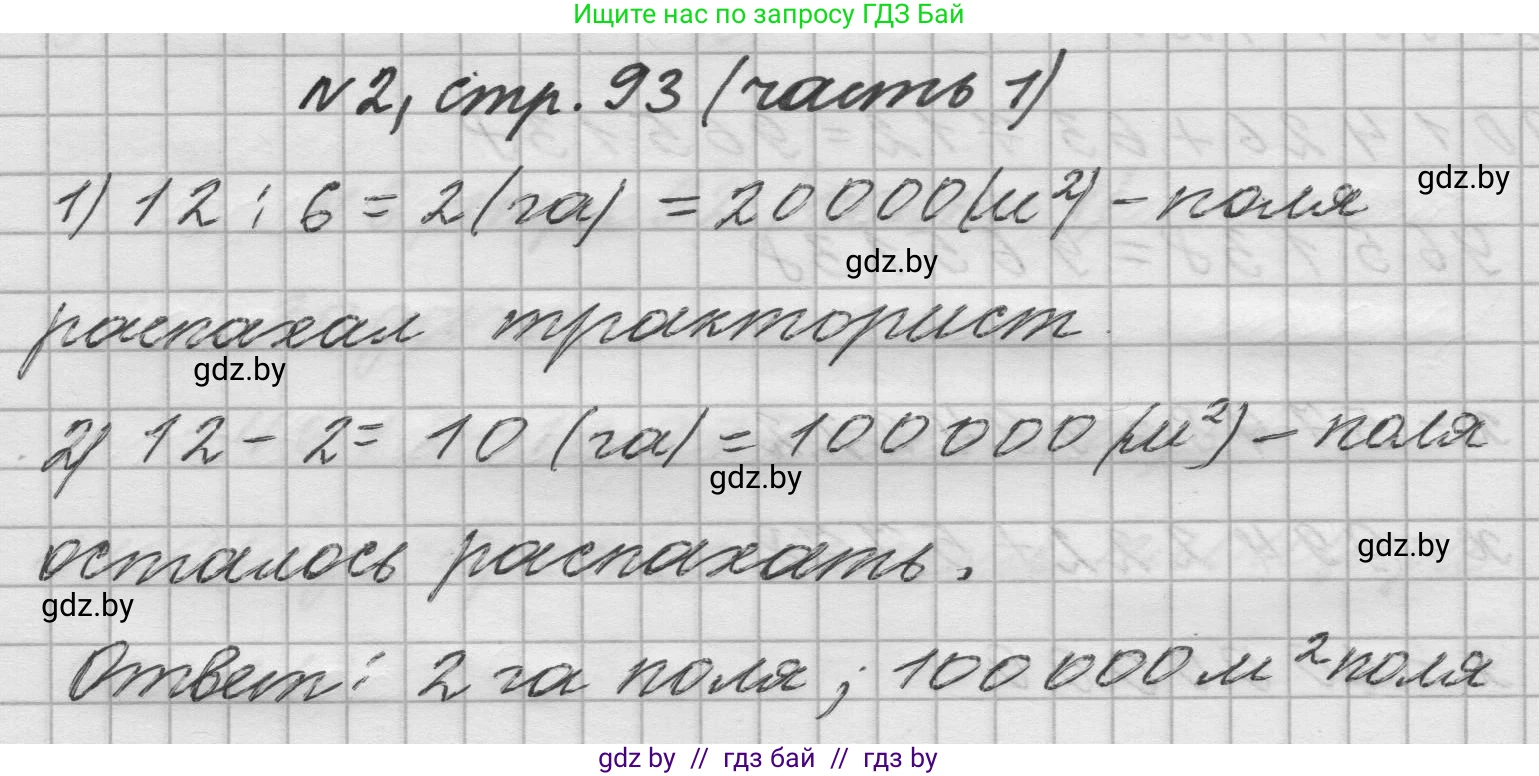 Ищите нас по запросу ГДЗ Бай
№2, стр. 93 (часть 1)
1) 12 : 6 = 2 (га) = 20000 (м²) - поля
gdz.by
gdz.by
распахал тракторист.
gdz.by
2) 12 - 2 = 10 (га) = 100000 (м²) - поля
gdz.by
осталось распахать.
gdz.by
gdz.by
Ответ: 2 га поля ; 100000 м² поля
gdz by // гдз бай // гдз by